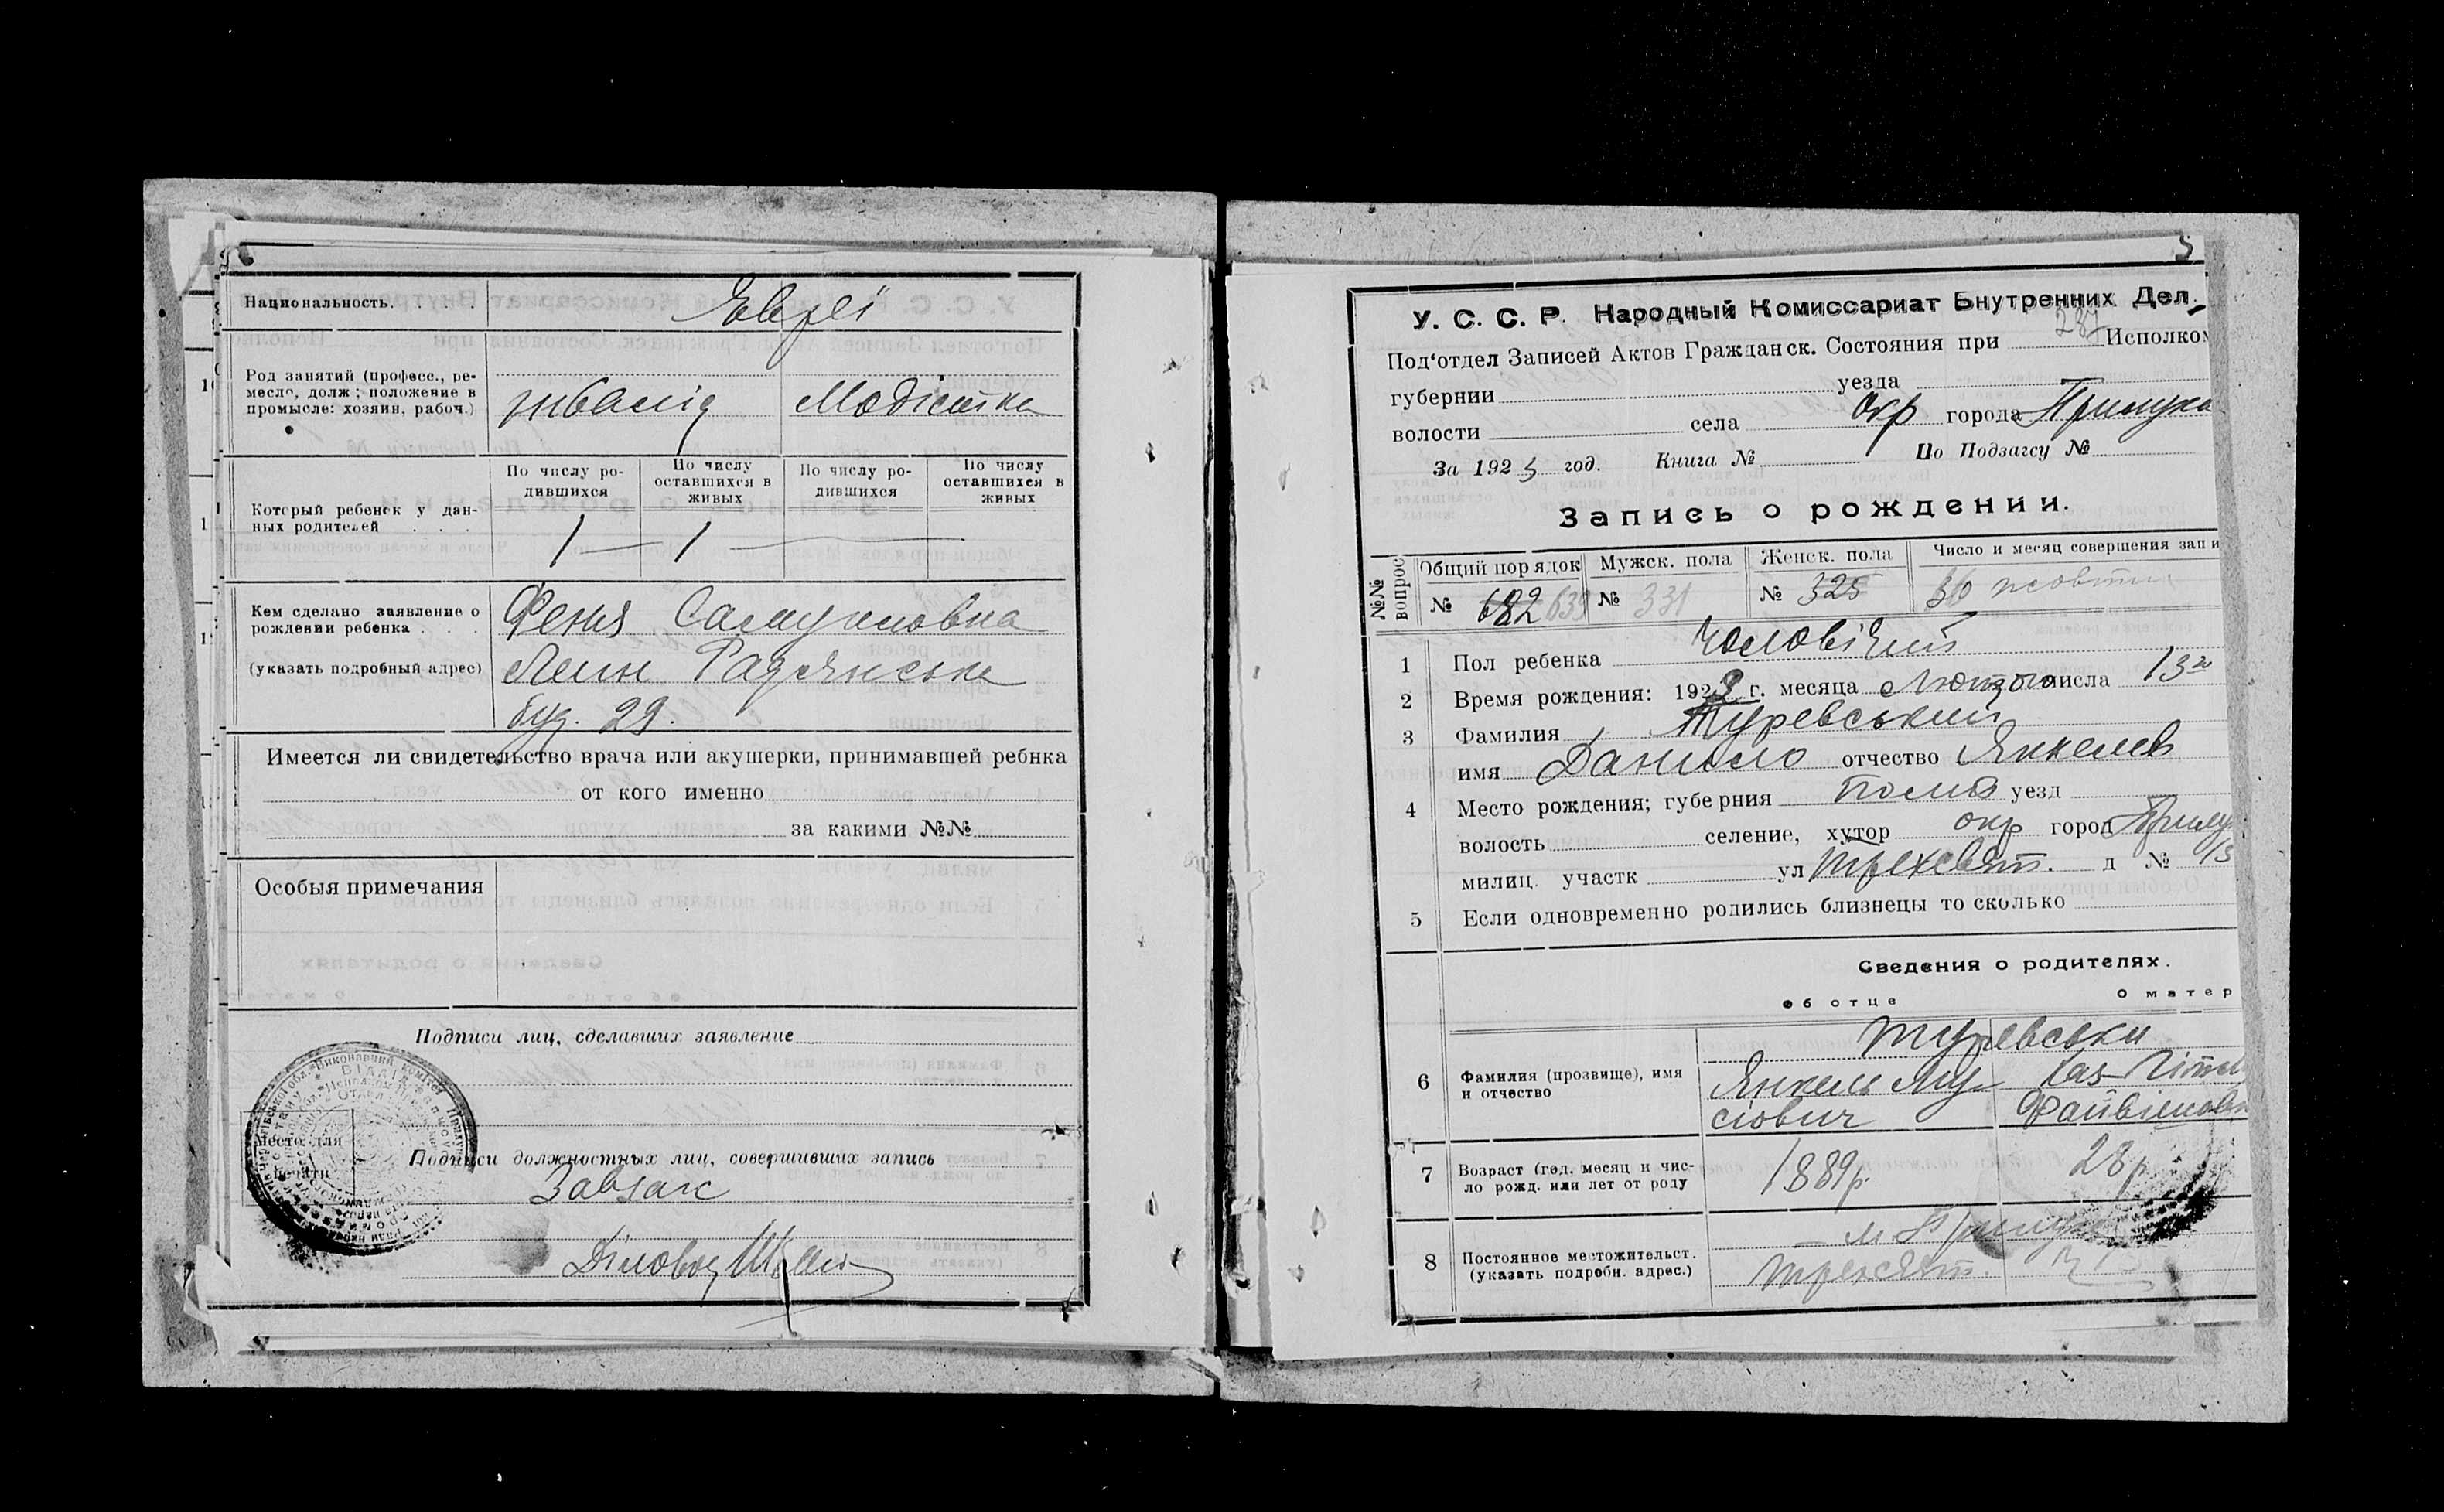 Национальность. Евреї
Род занятий (професс., ре-
месло, долж; положение в
промысле: хозяин, рабоч.)
інвалід Модістка
Который ребенок у дан-
ных родителей
По числу ро-
дившихся
По числу
оставшихся в
живых
По числу ро-
дившихся
По числу
оставшихся в
живых
1 — 1
Кем сделано заявление о
рождении ребенка
(указать подробный адрес)
Феня Самуиловна
Радянська
буд. 29.
Имеется ли свидетельство врача или акушерки, принимавшей ребнка
от кого именно
за какими №№
Особыя примечания
Подписи лиц, сделавших заявление
Место для
печати
Подписи должностных лиц, совершивших запись
Завзагс
Діловод
5
У. С. С. Р. Народный Комиссариат Внутренних Дел.
287
Под'отдел Записей Актов Гражданск. Состояния при Исполком
губернии уезда
волости села окр города Прилука
За 1923 год. Книга № По Подзагсу №
Запись о рождении.
№№ вопрос
Общий порядок Мужск. пола Женск. пола Число и месяц совершения запи
№ 682 639 № 331 № 325 30 жовтня
1 Пол ребенка Чоловічий
2 Время рождения: 1923 г. месяца Лютого числа 13го
3 Фамилия Туревський
имя Данило отчество Янкелев
4 Место рождения; губерния Полт уезд
волость селение, хутор окр город Прилу
милиц. участк ул Трехсвят. д № 13
5 Если одновременно родились близнецы то сколько
Сведения о родителях.
об отце о матер
6 Фамилия (прозвище), имя
и отчество
Туревськи
Янкель Му-
сіович
Файвіловн
7 Возраст (год, месяц и чис-
ло рожд. или лет от роду
1889р. 28р.
8 Постоянное местожительст.
(указать подробн. адрес.)
м. Прилук
Трехсвят. 13